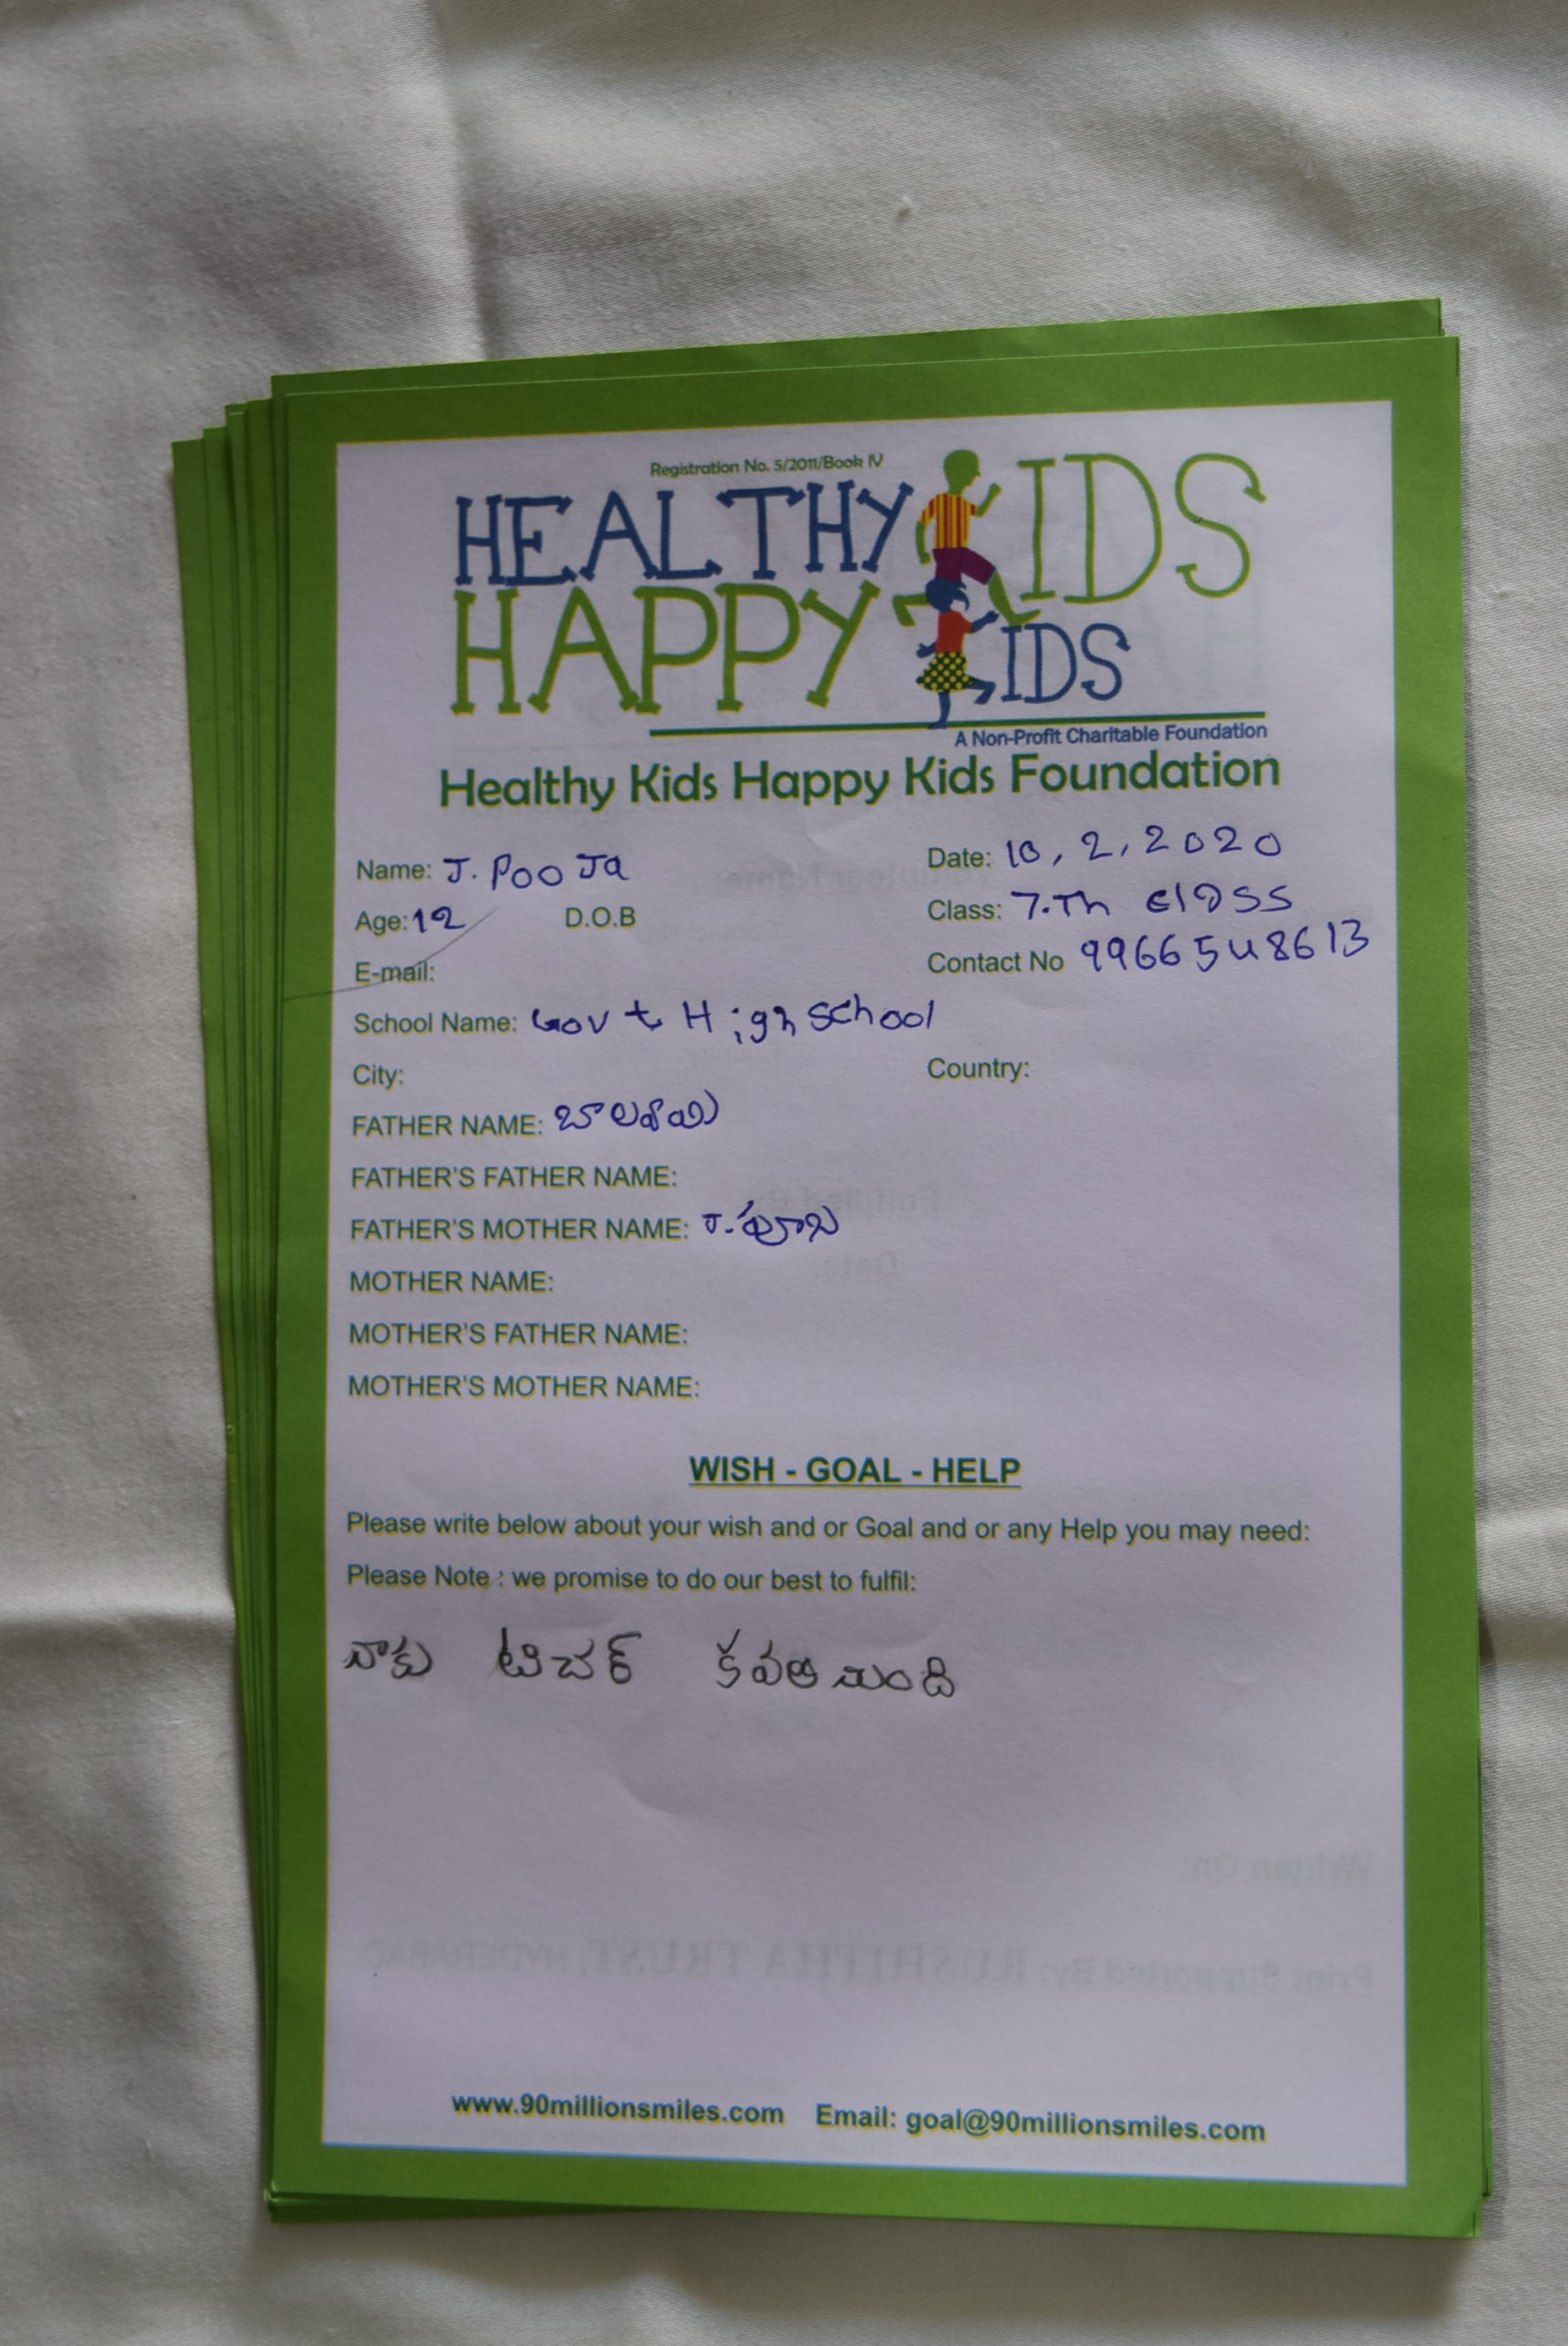 Registration No. 5/2011/Book IV
HEALTHY KIDS
HAPPY KIDS
A Non-Profit Charitable Foundation
Healthy Kids Happy Kids Foundation
Name: J. Pooja Date: 10, 2, 2020
Age: 12 D.O.B Class: 7.Th class
E-mail: Contact No 9966548613
School Name: Govt High school
City: Country:
FATHER NAME:
FATHER'S FATHER NAME:
FATHER'S MOTHER NAME:
MOTHER NAME:
MOTHER'S FATHER NAME:
MOTHER'S MOTHER NAME:
WISH - GOAL - HELP
Please write below about your wish and or Goal and or any Help you may need:
Please Note : we promise to do our best to fulfil:
నాకు టిచర్ కవలయింది
www.90millionsmiles.com Email: goal@90millionsmiles.com